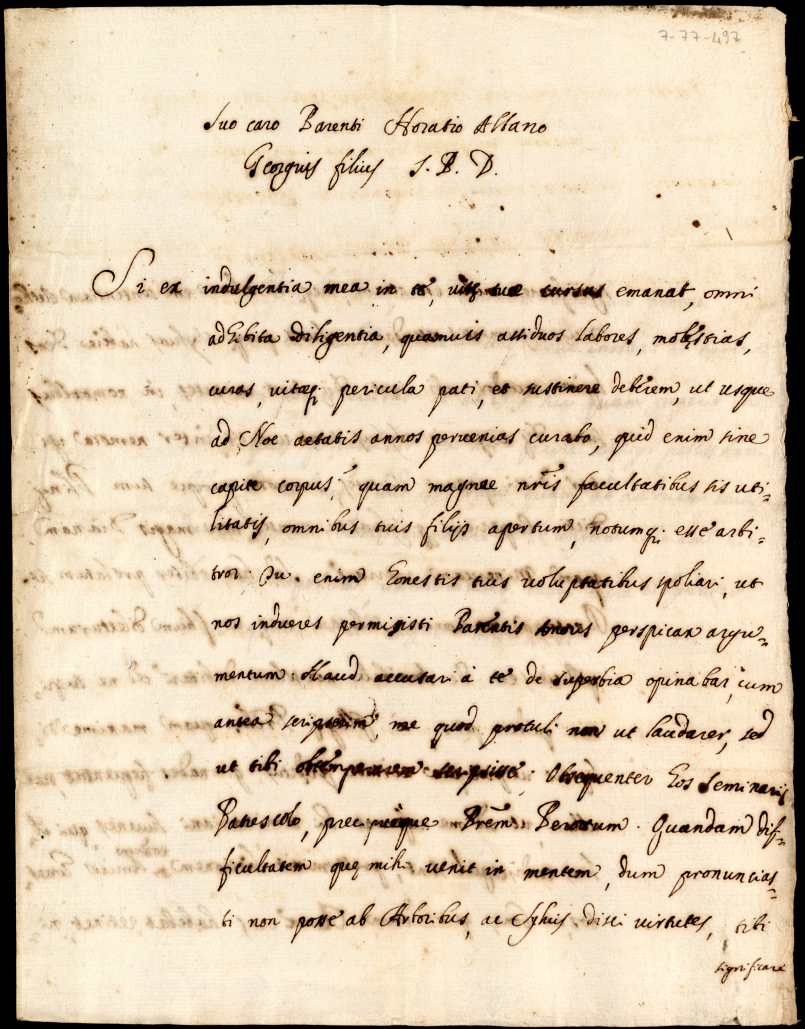 7-77-497
Suo caro Parenti Horatio Albano
Georgius filius S. P. D.
Si ex indulgentia mea in te, vitę tuæ cursus emanat, omni
adhibita diligentia, quamuis assiduos labores, molestias,
curas, vitæq; pericula pati, et sustinere deberem, ut usque
ad Noe aetatis annos pervenias curabo, quid enim sine
capite corpus? quam magnae nr̃is facultatibus sis uti=
litatis, omnibus tuis filijs apertum, notumq; esse arbi=
tror. Tu enim honestis tuis voluptatibus spoliari, ut
nos indueres permisisti Parentis amoris perspicax argu=
mentum. Haud accusari à te de superbia opinabar, cum
antea scripserim, me quod protuli non ut laudarer, sed
ut tibi obtemperarem scripsisse. Obsequenter hos seminarij
Patres colo, precipuèque Prẽm Perottum. Quandam dif=
ficultatem quę mihi venit in mentem, dum pronuncias=
ti non posse ab Arboribus, ac Sylvis disci virtutes, tibi
significare